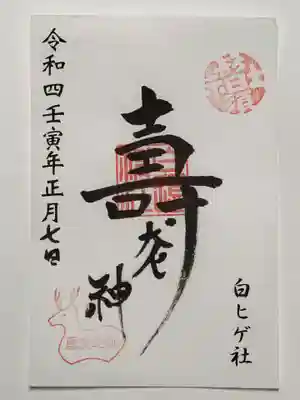 白ヒゲ社
壽老神
令和四壬寅年正月七日